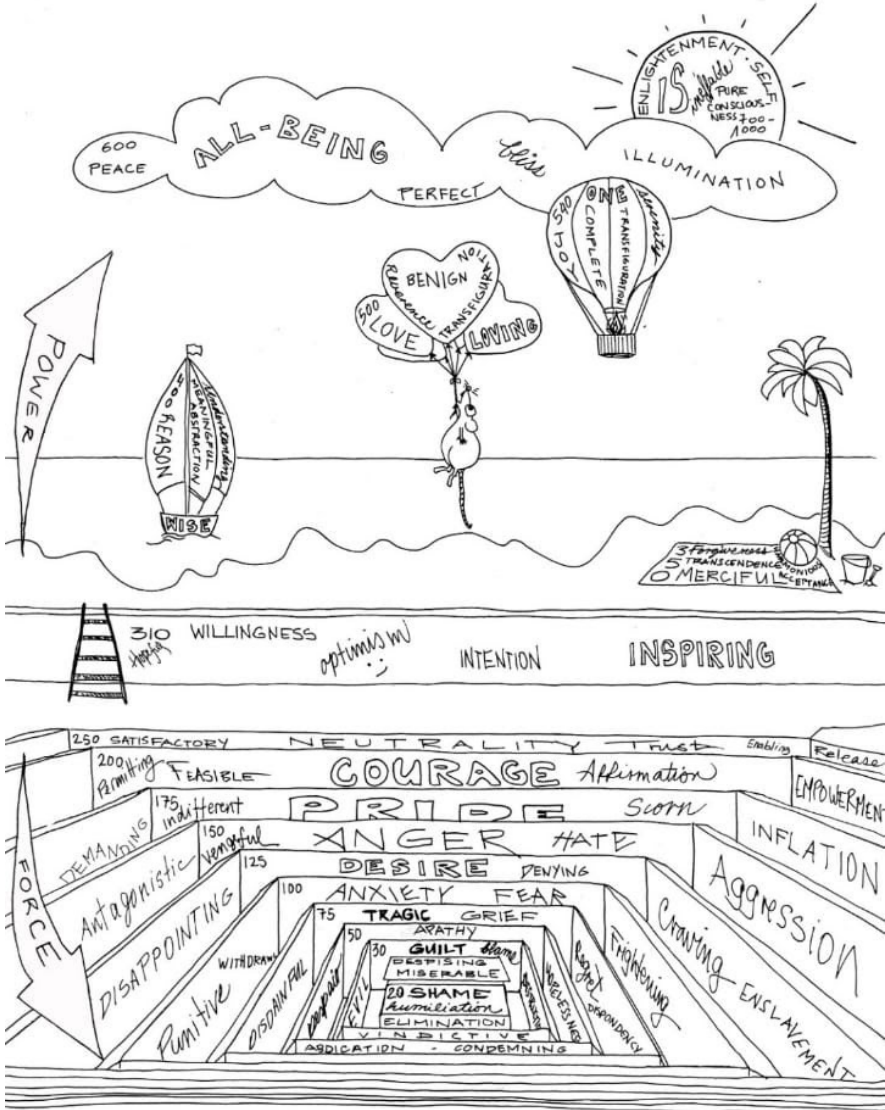 ENLIGHTENMENT · SELF
IS ineffable
PURE
CONSCIOUS-
NESS 700-
1000
600
PEACE
ALL-BEING
bliss
ILLUMINATION
PERFECT
540 JOY
ONE
COMPLETE
TRANSFIGURATION
serenity
BENIGN
Reverence
TRANSFIGURATION
500
LOVE
LOVING
POWER
400 REASON
MEANINGFUL
ABSTRACTION
Understanding
WISE
350
Forgiveness
TRANSCENDENCE
MERCIFUL
HARMONIOUS
ACCEPTANCE
310 WILLINGNESS
optimism
INTENTION
INSPIRING
250 SATISFACTORY NEUTRALITY Trust Enabling Release
200 Permitting FEASIBLE COURAGE Affirmation EMPOWERMENT
DEMANDING 175 indifferent PRIDE Scorn INFLATION
Antagonistic 150 vengeful ANGER HATE Aggression
DISAPPOINTING 125 DESIRE DENYING Craving ENSLAVEMENT
Punitive WITHDRAWL 100 ANXIETY FEAR Frightening
DISDAINFUL 75 TRAGIC GRIEF Regret DESPONDENCY
despair 50 APATHY HOPELESSNESS
EVIL 30 GUILT blame
DESPISING
MISERABLE
20 SHAME
humiliation
ELIMINATION
VINDICTIVE
ABDICATION - CONDEMNING
FORCE